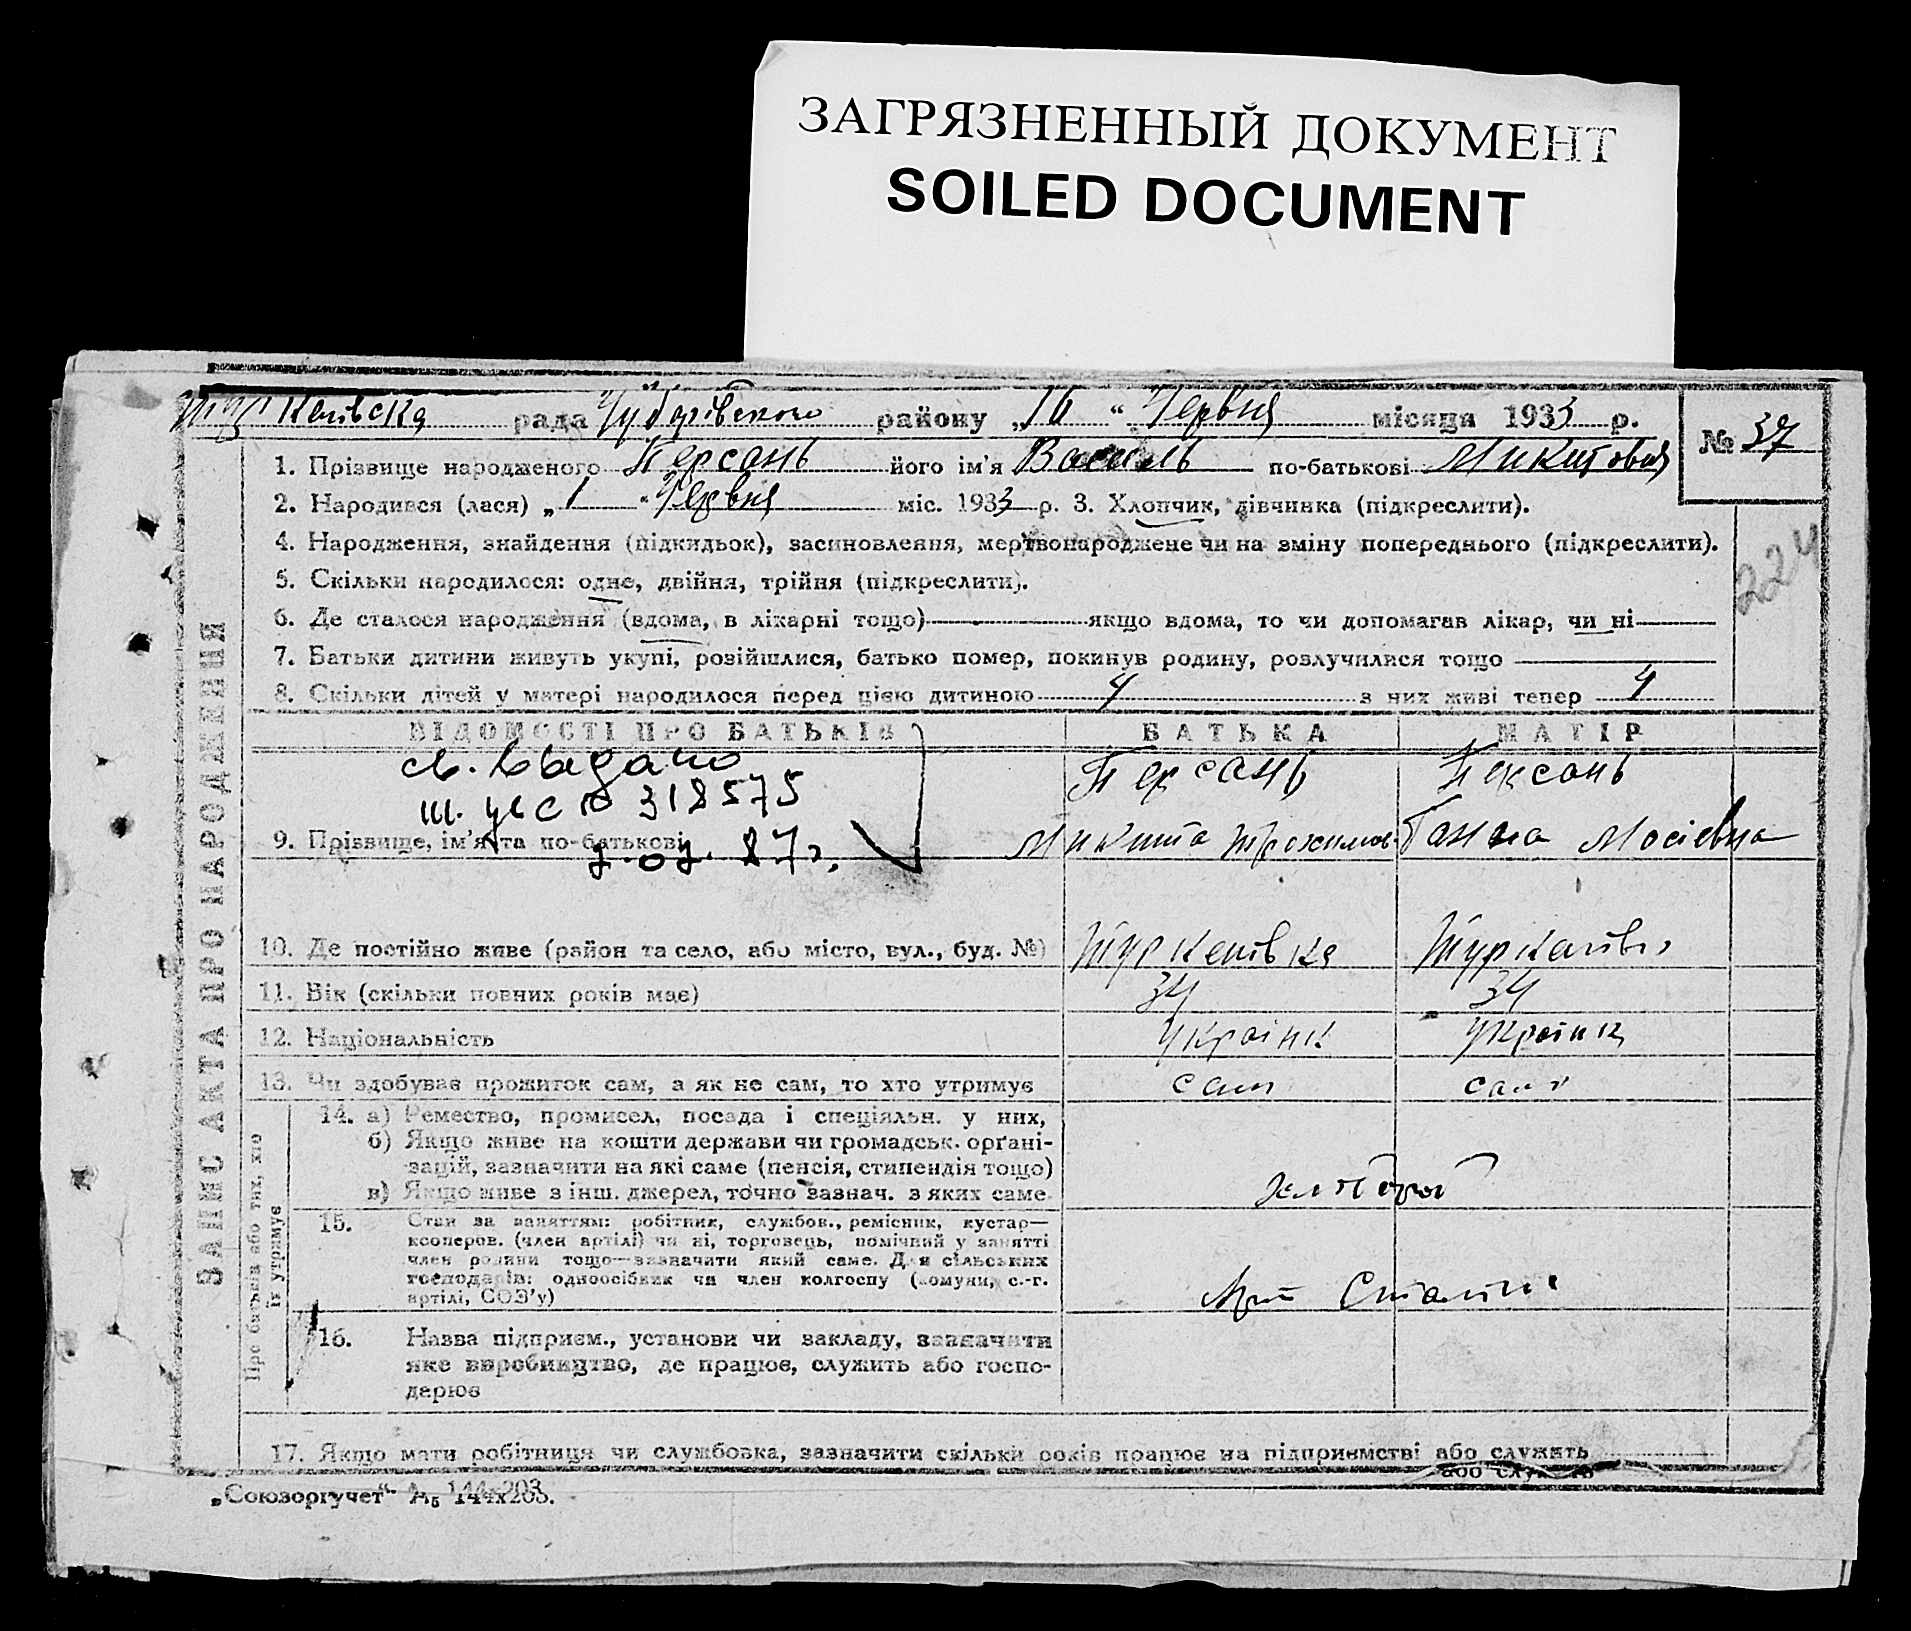 ЗАГРЯЗНЕННЫЙ ДОКУМЕНТ
SOILED DOCUMENT
Туркенівська рада Чубарівського району „16“ Червня місяця 1933 р.
№ 37
1. Прізвище народженого Персань його ім’я Василь по-батькові Микитович
2. Народився (лася) „1“ Червня міс. 1933 р. 3. Хлопчик, дівчинка (підкреслити).
4. Народження, знайдення (підкидьок), засиновлення, мертвонароджене чи на зміну попереднього (підкреслити).
224
5. Скільки народилося: одне, двійня, трійня (підкреслити).
6. Де сталося народження (вдома, в лікарні тощо) якщо вдома, то чи допомагав лікар, чи ні
7. Батьки дитини живуть укупі, розійшлися, батько помер, покинув родину, розлучилися тощо
8. Скільки дітей у матері народилося перед цією дитиною 4 з них живі тепер 4
ЗАПИС АКТА ПРО НАРОДЖЕННЯ
ВІДОМОСТІ ПРО БАТЬКІВ БАТЬКА МАТІР
св. выдано
318575
87г.
9. Прізвище, ім’я та по-батькові
Персань Персань
Микита Трохимов. Ганна Мосієвна
10. Де постійно живе (район та село, або місто, вул., буд. №) Туркенівка
11. Вік (скільки повних років має) 34 34
12. Національність Українк Українка
13. Чи здобував прожиток сам, а як не сам, то хто утримує сам сам
Про батьків або тих, хто їх утримує
14. а) Ремество, промисел, посада і спеціяльн. у них,
б) Якщо живе на кошти держави чи громадськ. орґані-
зацій, зазначити на які саме (пенсія, стипендія тощо)
в) Якщо живе з інш. джерел, точно зазнач. з яких саме
хлібороб
15. Стан за заняттям: робітник, службов., ремісник, кустар—
кооперов. (член артілі) чи ні, торговець, помічний у занятті
член родини тощо—зазначити який саме. Для сільських
господарів: одноосібник чи член колгоспу (комуни, с.-г.
артілі, СОЗ’у)
Арт Сталін
16. Назва підприєм., установи чи закладу, зазначити
яке виробництво, де працює, служить або госпо-
дарює
17. Якщо мати робітниця чи службовка, зазначити скільки років працює на підприємстві або служить
„Союзоргучет“ А₅ 144х203.